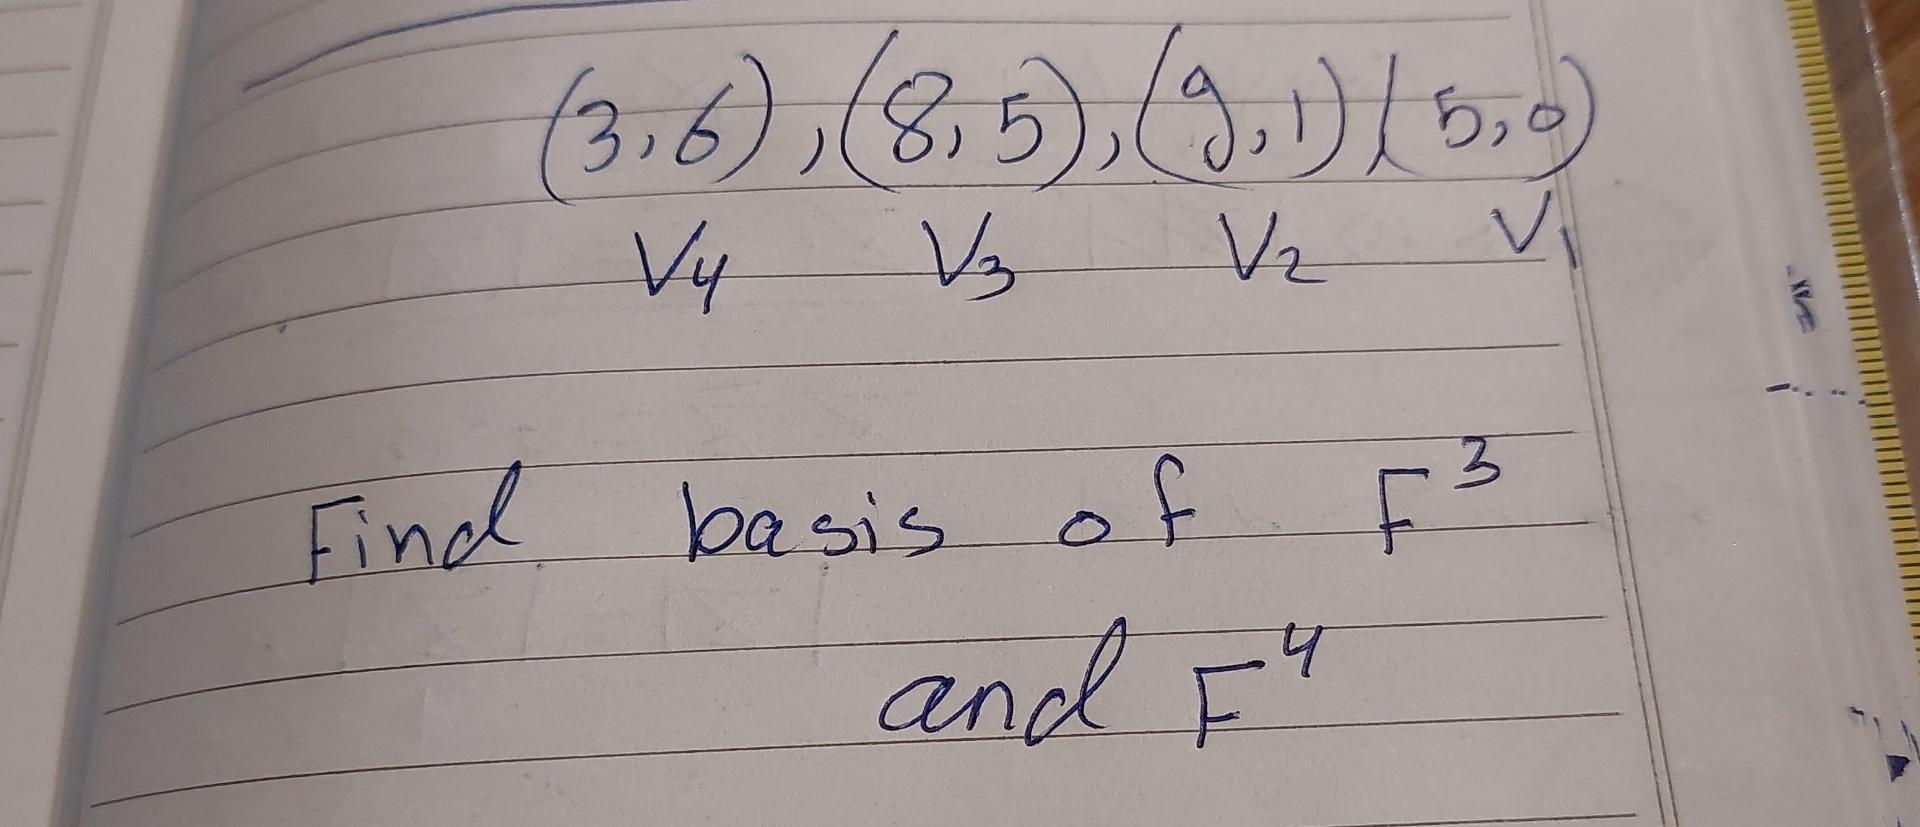 (3,6),(8,5),(9,1)(5,0)
V4 V3 V2 V1
Find basis of F³
and F⁴